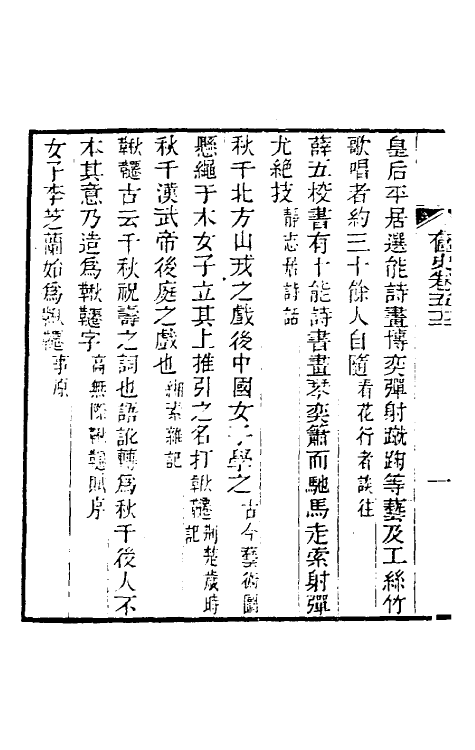 奩史卷五十三 一
皇后平居選能詩畫博奕彈射蹴踘等藝及工絲竹
歌唱者約三十餘人自隨看花行者談往
薛五校書有十能詩書畫琴奕簫而馳馬走索射彈
尤絶技靜志居詩話
秋千北方山戎之戲後中國女子學之古今藝術圖
懸繩于木女子立其上推引之名打鞦韆荆楚歲時記
秋千漢武帝後庭之戲也緗素雜記
鞦韆古云千秋祝壽之詞也語訛轉爲秋千後人不
本其意乃造爲鞦韆字高無際鞦韆賦序
女子李芝蘭始爲鞦韆事原